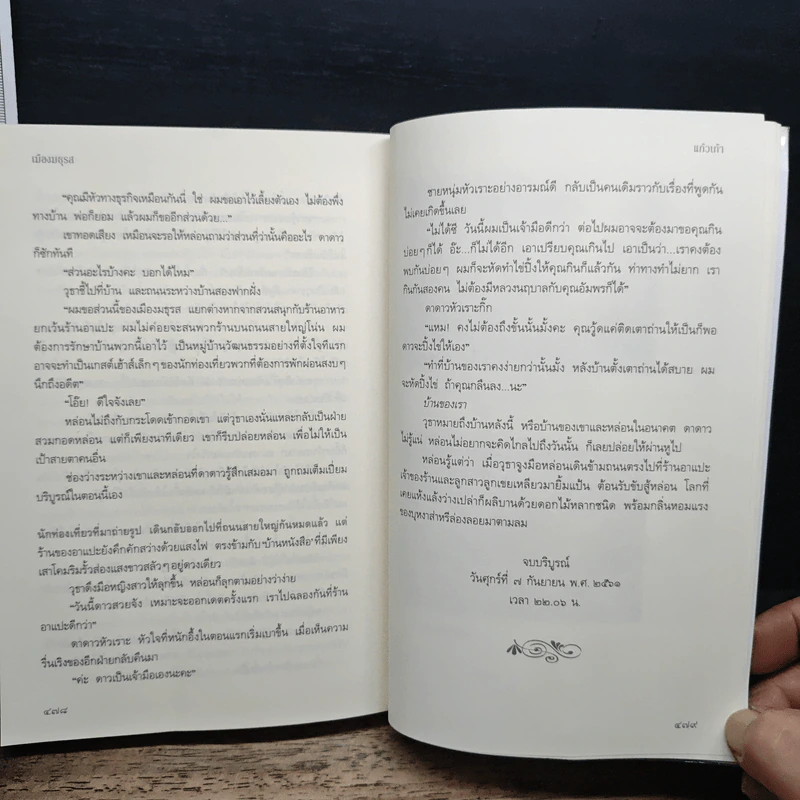 เมืองมธุรส
"คุณมีหัวทางธุรกิจเหมือนกันนี่ ใช่ ผมขอเอาไว้เลี้ยงตัวเอง ไม่ต้องพึ่ง
ทางบ้าน พ่อก็ยอม แล้วผมก็ขออีกส่วนด้วย..."
เขาทอดเสียง เหมือนจะรอให้หล่อนถามว่าส่วนที่ว่านั้นคืออะไร ดาดาว
ก็ซักทันที
"ส่วนอะไรบ้างคะ บอกได้ไหม"
วุธาชี้ไปที่บ้าน และถนนระหว่างบ้านสองฟากฝั่ง
"ผมขอส่วนนี้ของเมืองมธุรส แยกต่างหากจากสวนสนุกกับร้านอาหาร
ยกเว้นร้านอาแปะ ผมไม่ค่อยจะสนพวกร้านบนถนนสายใหญ่โน่น ผม
ต้องการรักษาบ้านพวกนี้เอาไว้ เป็นหมู่บ้านวัฒนธรรมอย่างที่ตั้งใจทีแรก
อาจจะทำเป็นเกสต์เฮ้าส์เล็กๆ ของนักท่องเที่ยวพวกที่ต้องการพักผ่อนสงบๆ
นึกถึงอดีต"
"โอ๊ย! ดีใจจังเลย"
หล่อนไม่ถึงกับกระโดดเข้ากอดเขา แต่วุธาเองนั่นแหละกลับเป็นฝ่าย
สวมกอดหล่อน แต่ก็เพียงนาทีเดียว เขาก็รีบปล่อยหล่อน เพื่อไม่ให้เป็น
เป้าสายตาคนอื่น
ช่องว่างระหว่างเขาและหล่อนที่ดาดาวรู้สึกเสมอมา ถูกถมเต็มเปี่ยม
บริบูรณ์ในตอนนี้เอง
นักท่องเที่ยวที่มาถ่ายรูป เดินกลับออกไปที่ถนนสายใหญ่กันหมดแล้ว แต่
ร้านของอาแปะยังคึกคักสว่างด้วยแสงไฟ ตรงข้ามกับ'บ้านหนังสือ'ที่มีเพียง
เสาโคมริมรั้วส่องแสงขาวสลัวๆ อยู่ดวงเดียว
วุธาดึงมือหญิงสาวให้ลุกขึ้น หล่อนก็ลุกตามอย่างว่าง่าย
"วันนี้ดาวสวยจัง เหมาะจะออกเดตครั้งแรก เราไปฉลองกันที่ร้าน
อาแปะดีกว่า"
ดาดาวหัวเราะ หัวใจที่หนักอึ้งในตอนแรกเริ่มเบาขึ้น เมื่อเห็นความ
รื่นเริงของอีกฝ่ายกลับคืนมา
"ค่ะ ดาวเป็นเจ้ามือเองนะคะ"
๔๗๘
แก้วเก้า
ชายหนุ่มหัวเราะอย่างอารมณ์ดี กลับเป็นคนเดิมราวกับเรื่องที่พูดกัน
ไม่เคยเกิดขึ้นเลย
"ไม่ได้ซี วันนี้ผมเป็นเจ้ามือดีกว่า ต่อไปผมอาจจะต้องมาขอคุณกิน
บ่อยๆ ก็ได้ อ๊ะ...ก็ไม่ได้อีก เอาเปรียบคุณเกินไป เอาเป็นว่า...เราคงต้อง
พบกันบ่อยๆ ผมก็จะหัดทำไข่ปิ้งให้คุณกินก็แล้วกัน ท่าทางทำไม่ยาก เรา
กินกันสองคน ไม่ต้องมีหลวงนฤบาลกับคุณอัมพรก็ได้"
ดาดาวหัวเราะกิ๊ก
"แหม! คงไม่ต้องถึงขั้นนั้นมั้งคะ คุณวู้ดแค่ติดเตาถ่านให้เป็นก็พอ
ดาวจะปิ้งไข่ให้เอง"
"ทำที่บ้านของเราคงง่ายกว่านั้นมั้ง หลังบ้านตั้งเตาถ่านได้สบาย ผม
จะหัดปิ้งไข่ ถ้าคุณกลืนลง...นะ"
บ้านของเรา
วุธาหมายถึงบ้านหลังนี้ หรือบ้านของเขาและหล่อนในอนาคต ดาดาว
ไม่รู้แน่ หล่อนไม่อยากจะคิดไกลไปถึงวันนั้น ก็เลยปล่อยให้ผ่านหูไป
หล่อนรู้แต่ว่า เมื่อวุธาจูงมือหล่อนเดินข้ามถนนตรงไปที่ร้านอาแปะ
เจ้าของร้านและลูกสาวลูกเขยเหลียวมายิ้มแป้น ต้อนรับขับสู้หล่อน โลกที่
เคยแห้งแล้งว่างเปล่าก็ผลิบานด้วยดอกไม้หลากชนิด พร้อมกลิ่นหอมแรง
ของบุหงาส่าหรีล่องลอยมาตามลม
จบบริบูรณ์
วันศุกร์ที่ ๗ กันยายน พ.ศ. ๒๕๖๑
เวลา ๒๒.๐๖ น.
๔๗๙